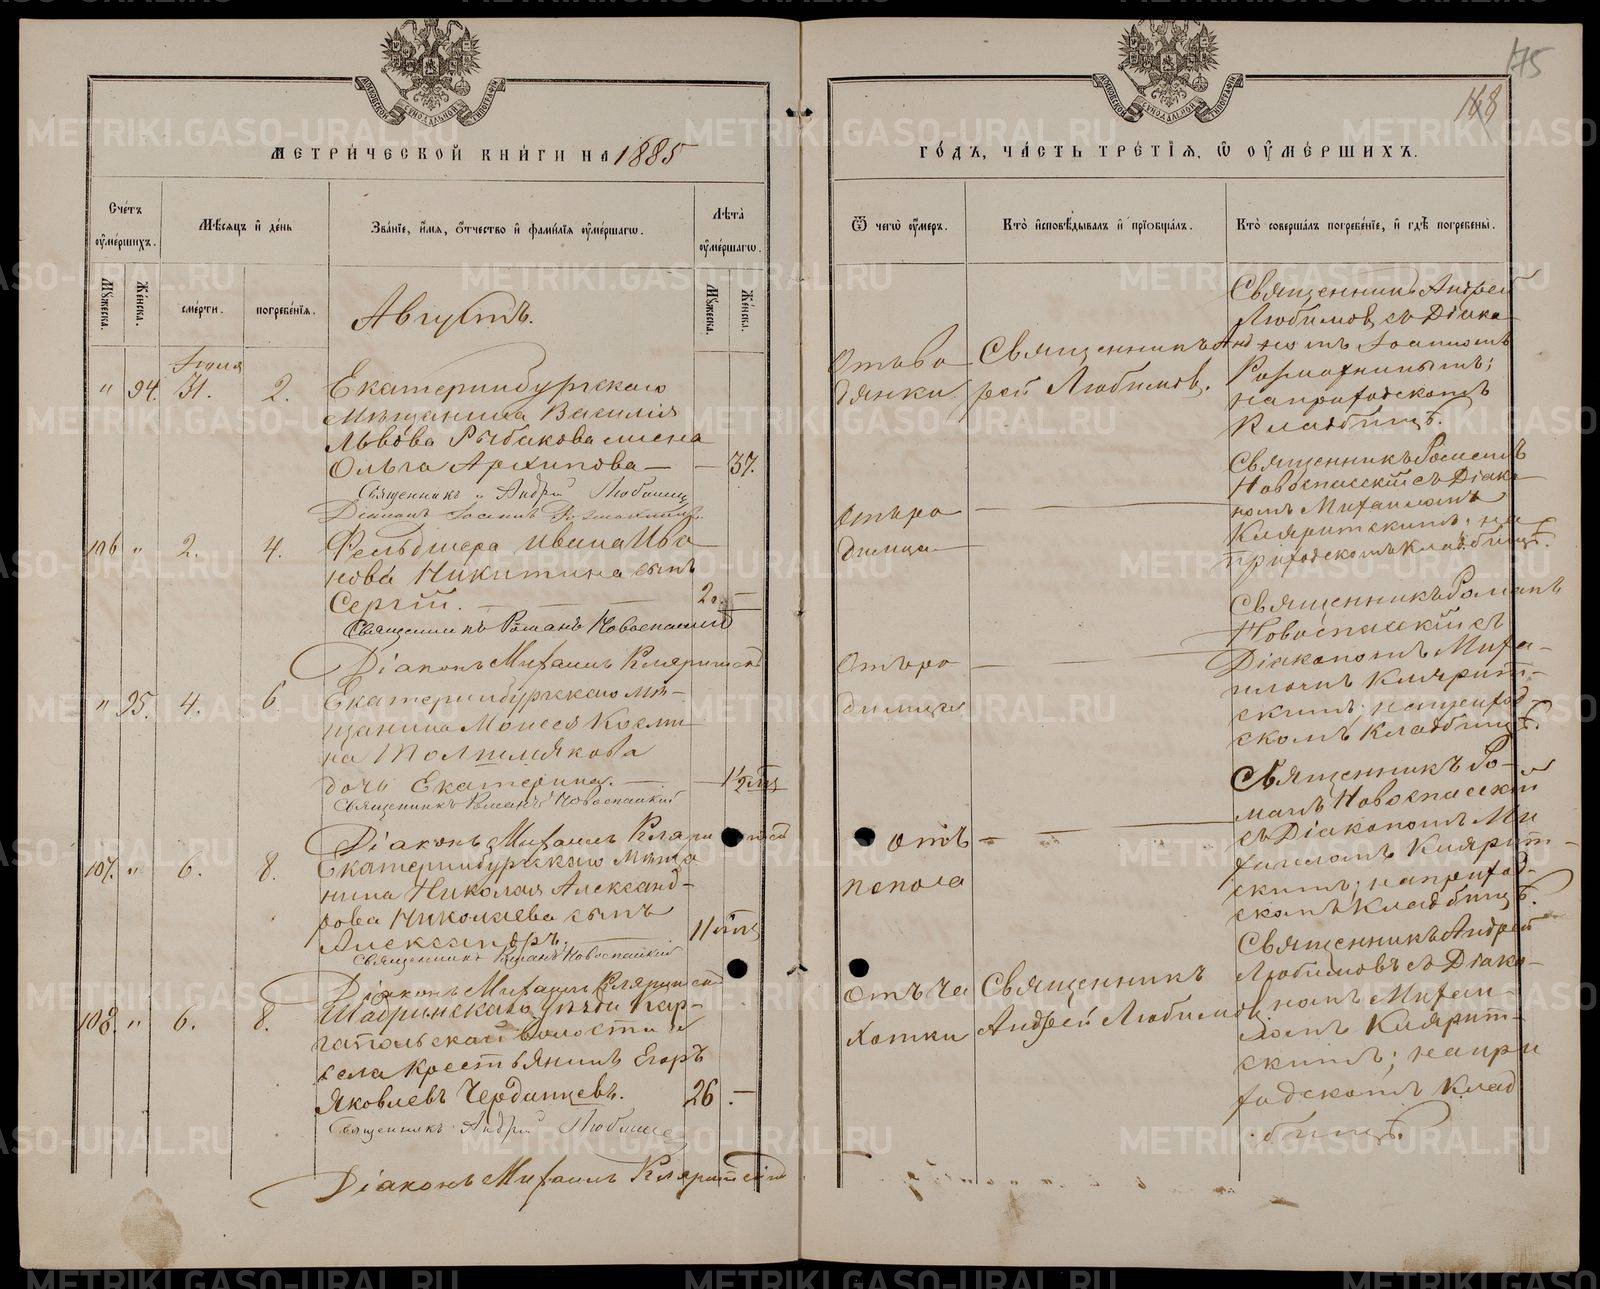 175
168
МЕТРИ́ЧЕСКОЙ КНИ́ГИ НА 1885
ГО́ДЪ, ЧА́СТЬ ТРЕ́ТІЯ, Ѡ ОУМЕ́РШИХЪ.
Сче́тъ оуме́ршихъ.
Мѣсяцъ и҆ де́нь
Зва́ніе, и҆́мя, ѻ҆́тчество и҆ фами́лія оуме́ршагѡ.
Лѣта̀ оуме́ршагѡ.
Му́жеска.
Же́нска.
сме́рти.
погребе́нія.
Му́жеска.
Же́нска.
Ѿ чегѡ̀ оу́меръ.
Кто̀ и҆сповѣ́дывалъ и҆ пріобща́лъ.
Кто̀ соверша́лъ погребе́ніе, и҆ гдѣ̀ погребены̀.
Августъ.
Іюля
" 94. 31. 2.
Екатеринбургскаго
Мѣщанина Василія
Львова Рыбакова жена
Ольга Архипова — — 37.
Священникъ Андрей Любимовъ
Діаконъ Іоаннъ
Отъ во
дянки.
Священникъ Анд
рей Любимов.
Священникъ Андрей
Любимов, съ Діако
номъ Іоанномъ
на приходскомъ
Кладбищѣ.
106 " 2. 4.
Фельдшера Ивана Ива
нова Никитина сынъ
Сергій. — — — 2 г. —
Священникъ Романъ Новоспасскій
Діаконъ Михаилъ Кляритскій
Отъ ро
димца —
Священникъ Романъ
Новоспасскій съ Діако
номъ Михаиломъ
Кляритскимъ, на
приходскомъ кладбищѣ.
" 95. 4. 6
Екатеринбургскаго мѣ-
щанина Моисея Косми
на Толшмякова
дочь Екатерина. — — 1½ мц
Священникъ Романъ Новоспасскій
Діаконъ Михаилъ Кляритскій
Отъ ро
димца
Священникъ Романъ
Новоспасскій съ
Діакономъ Миха-
иломъ Кляритт-
скимъ; на приход-
скомъ кладбищѣ.
107. " 6. 8.
Екатеринбургскаго мѣща
нина Николая Александ-
рова Николаева сынъ
Александръ. — 11 мц
Священникъ Романъ Новоспасскій
Діаконъ Михаилъ Кляритскій
отъ
поноса
Священникъ Ро-
манъ Новоспасскій
съ Діакономъ Ми
хаиломъ Кляритт-
скимъ; на приход-
скомъ Кладбищѣ.
108. " 6. 8.
Шадринскаго уѣзда Кар-
гапольской волости и
села крестьянинъ Егоръ
Яковлевъ Черданцевъ. 26. —
Священникъ Андрей Любимов
Діаконъ Михаилъ Кляритскій
Отъ ча
хотки
Священникъ
Андрей Любимов
Священникъ Андрей
Любимовъ съ Діако-
номъ Михаи-
ломъ Кляритт-
скимъ; на при
ходскомъ клад
бищѣ.